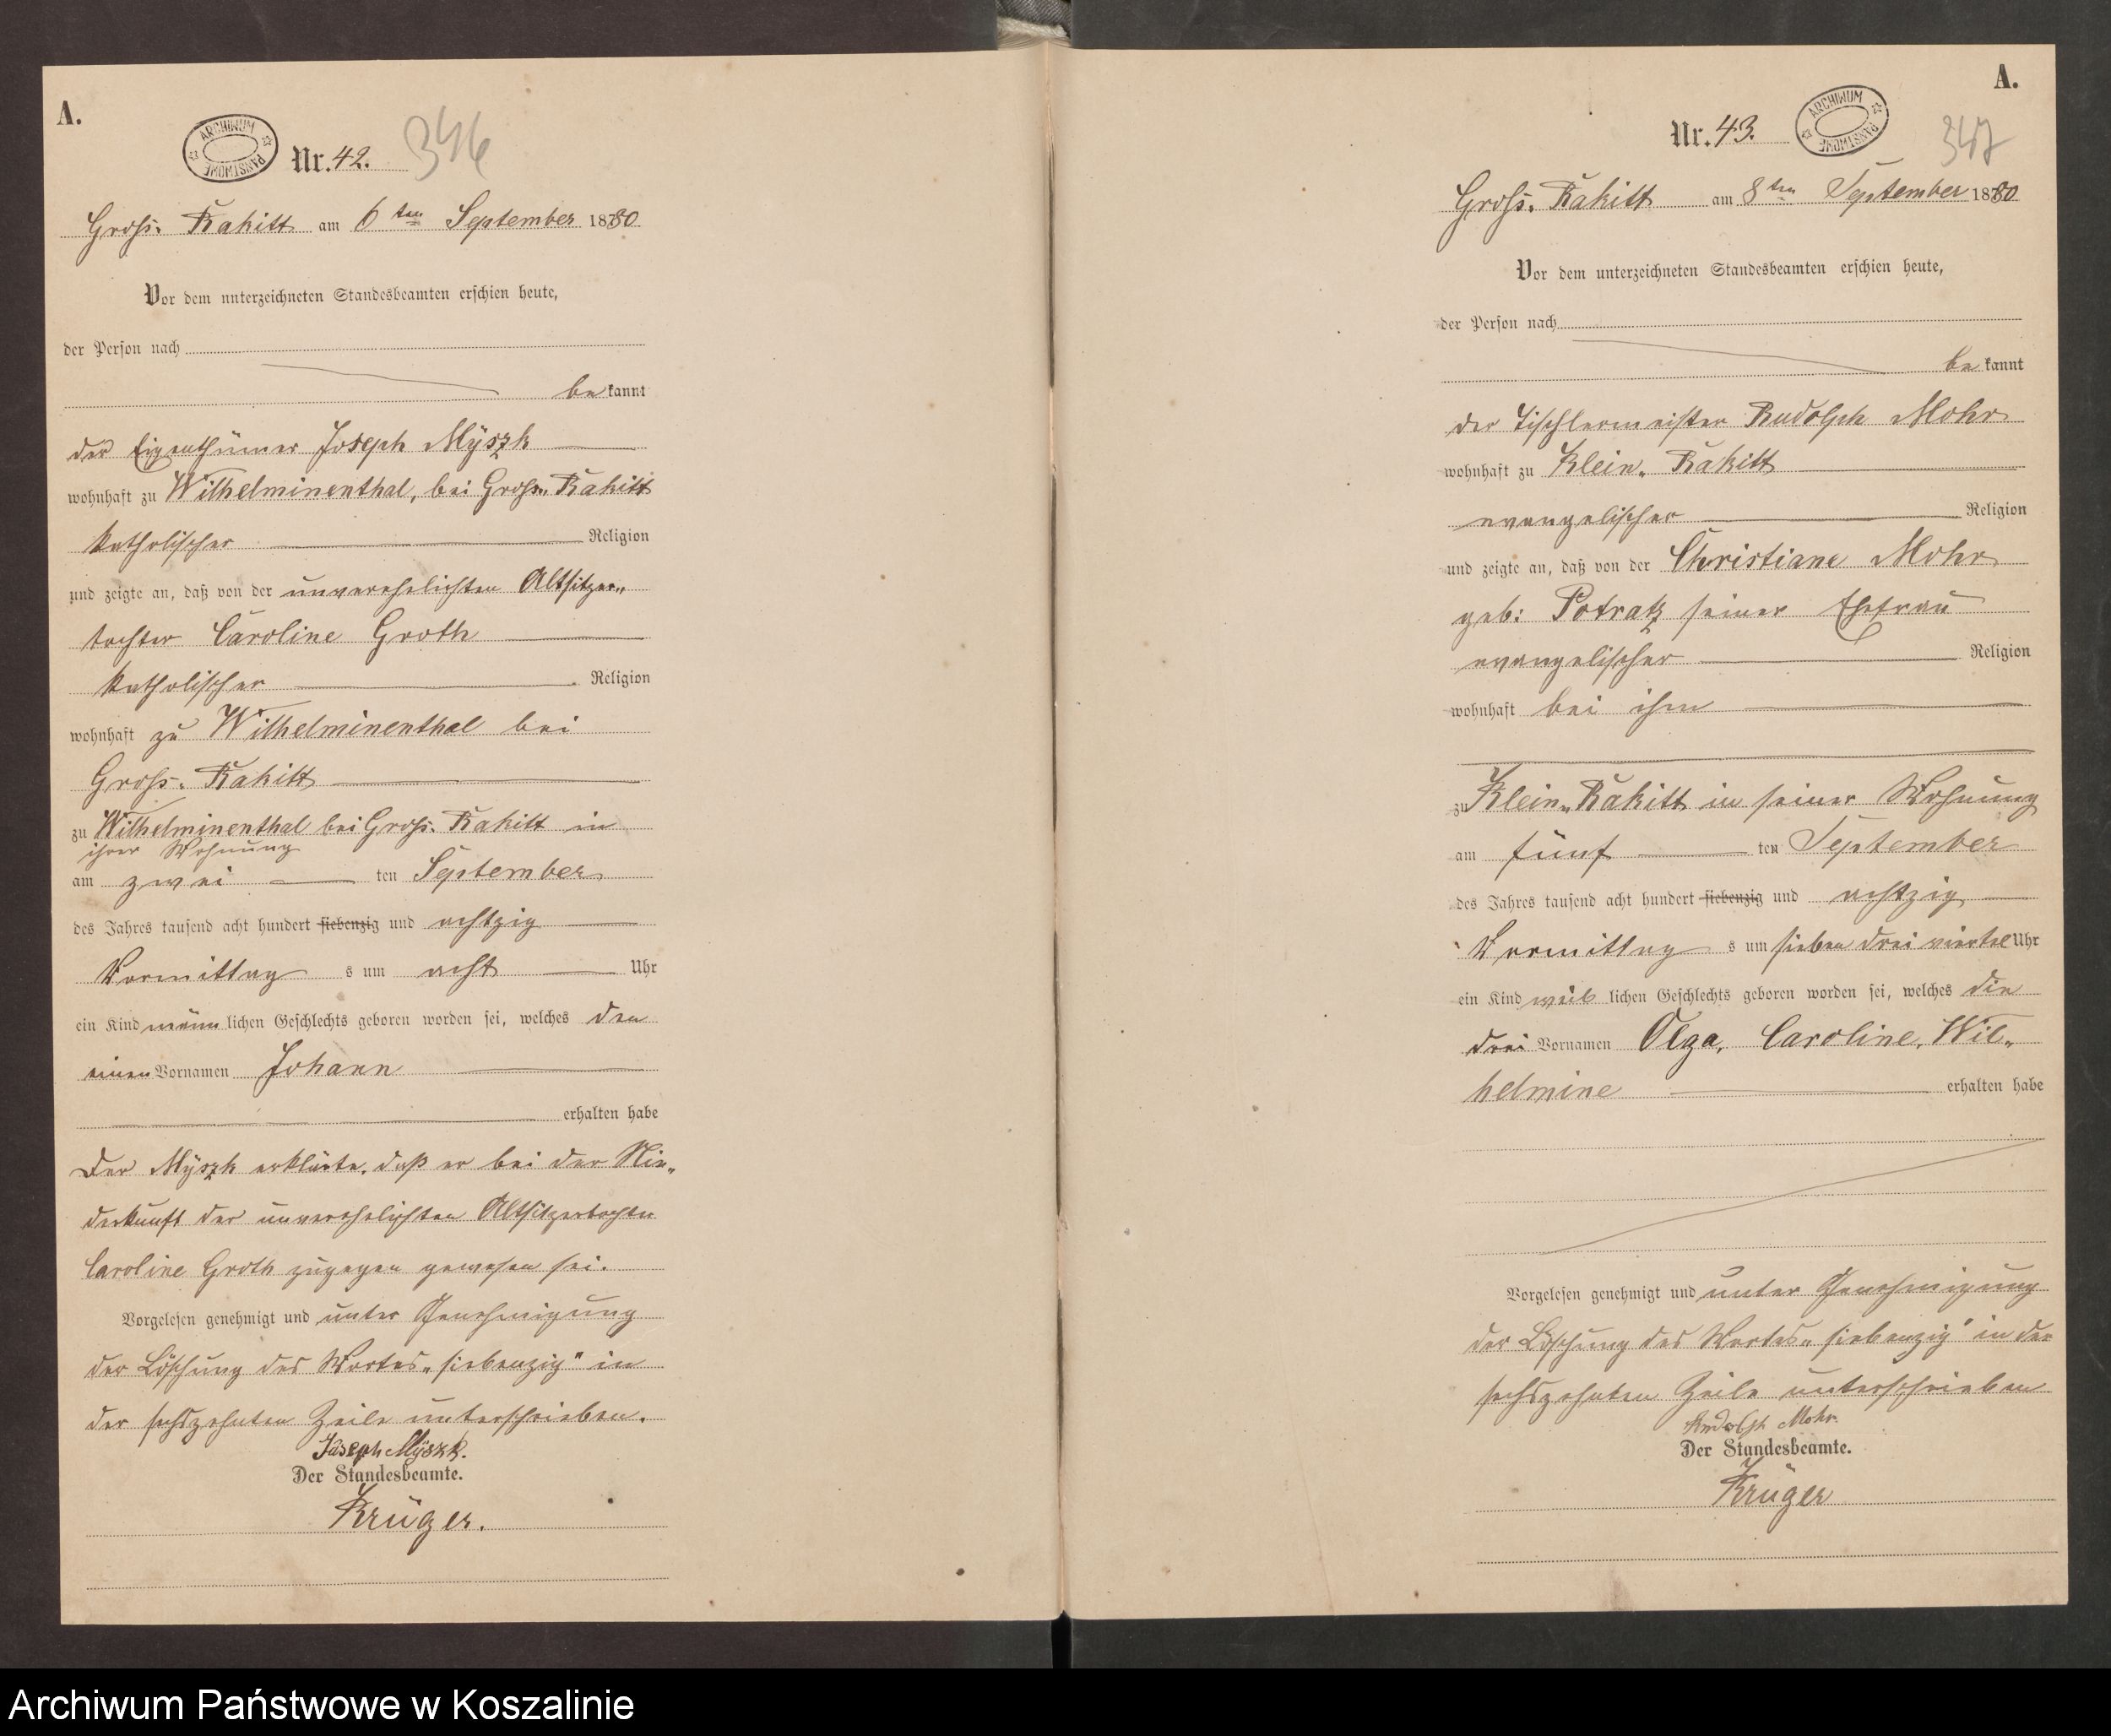 A.
ARCHIWUM PAŃSTWOWE
Nr. 42.
346
Gross-Rakitt am 6ten September 1880
Vor dem unterzeichneten Standesbeamten erschien heute,
der Person nach
bekannt
der Eigenthümer Joseph Mÿszk
wohnhaft zu Wilhelminenthal, bei Gross-Rakitt
katholischer Religion
und zeigte an, daß von der unverehelichten Altsitzer-
tochter Caroline Groth
katholischer Religion
wohnhaft zu Wilhelminenthal bei
Gross-Rakitt
zu Wilhelminenthal bei Gross-Rakitt in
ihrer Wohnung
am zwei ten September
des Jahres tausend acht hundert siebenzig und achtzig
Vormittag s um acht Uhr
ein Kind männlichen Geschlechts geboren worden sei, welches den
einen Vornamen Johann
erhalten habe
Der Mÿszk erklärte, daß er bei der Nie-
derkunft der unverehelichten Altsitzertochter
Caroline Groth zugegen gewesen sei.
Vorgelesen genehmigt und unter Genehmigung
der Löschung des Wortes „siebenzig" in
der sechszehnten Zeile unterschrieben.
Joseph Mÿszk.
Der Standesbeamte.
Krüger.
A.
Nr. 43.
ARCHIWUM PAŃSTWOWE
347
Gross-Rakitt am 8ten September 1880
Vor dem unterzeichneten Standesbeamten erschien heute,
der Person nach
bekannt
der Tischlermeister Rudolph Mohr
wohnhaft zu Klein-Rakitt
evangelischer Religion
und zeigte an, daß von der Christiane Mohr
geb: Potratz seiner Ehefrau
evangelischer Religion
wohnhaft bei ihm
zu Klein-Rakitt in seiner Wohnung
am fünf ten September
des Jahres tausend acht hundert siebenzig und achtzig
Vormittag s um sieben drei viertel Uhr
ein Kind weiblichen Geschlechts geboren worden sei, welches die
drei Vornamen Olga, Caroline, Wil-
helmine erhalten habe
Vorgelesen genehmigt und unter Genehmigung
der Löschung des Wortes „siebenzig" in der
sechszehnten Zeile unterschrieben
Rudolph Mohr
Der Standesbeamte.
Krüger
Archiwum Państwowe w Koszalinie